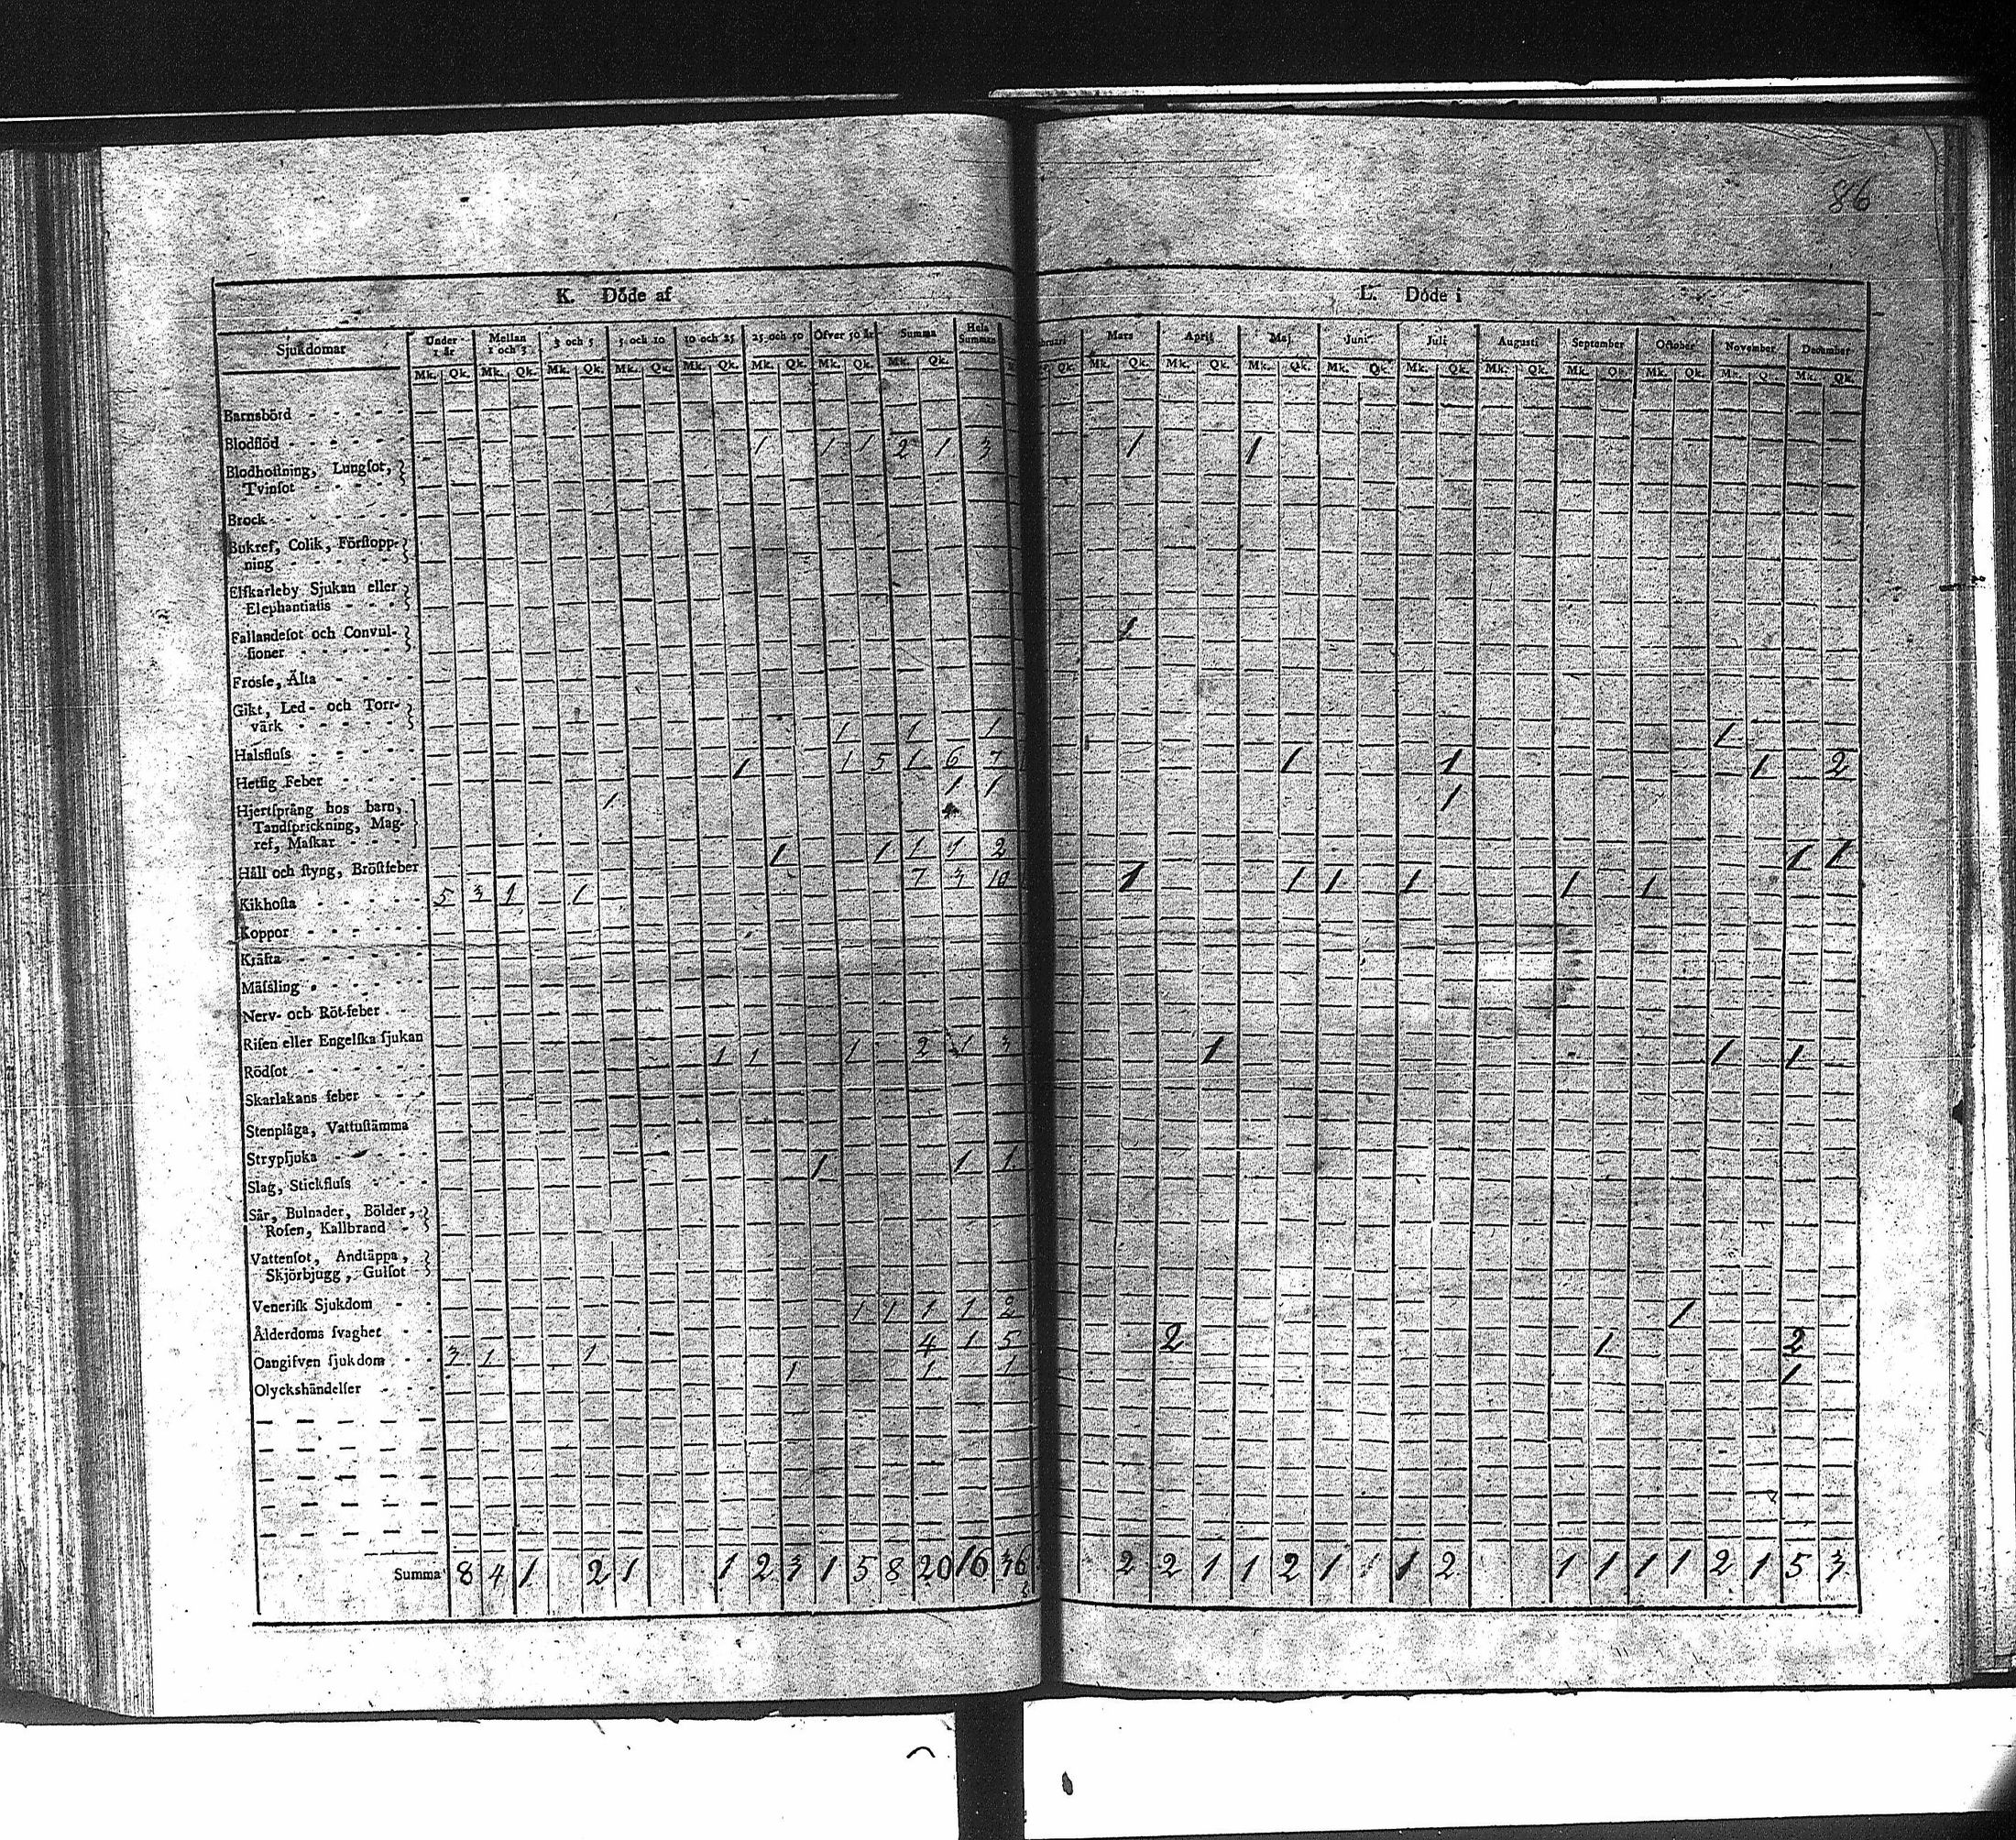 86
K. Döde af
L. Döde i
Sjukdomar Under 1 år Mellan 1 och 3 3 och 5 5 och 10 10 och 25 25 och 50 Öfver 50 år Summa Hela Summan
Mk. Qk. Mk. Qk. Mk. Qk. Mk. Qk. Mk. Qk. Mk. Qk. Mk. Qk. Mk. Qk.
Mars April Maj Juni Juli Augusti September October November December
Qk. Mk. Qk. Mk. Qk. Mk. Qk. Mk. Qk. Mk. Qk. Mk. Qk. Mk. Qk. Mk. Qk. Mk. Qk. Mk. Qk.
Barnsbörd
Blodflöd 1 1 1 2 1 3 1 1
Blodhoſtning, Lungſot,
Tvinſot
Brock
Bukref, Colik, Förſtopp-
ning
Elfkarleby Sjukan eller
Elephantiaſis
Fallandeſot och Convul-
ſioner 1
Frosſe, Älta
Gikt, Led- och Torr-
värk 1 1 1 1
Halsfluſs 1 1 5 1 6 7 1 1 1 2
Hetſig Feber 1 1
Hjertſprång hos barn, 1 1
Tandſprickning, Mag-
ref, Maſkar 1 1 1 1 2 1 1
Håll och ſtyng, Bröſtfeber 7 3 10 1 1 1 1 1 1
Kikhoſta 5 3 1 1
Koppor
Kräfta
Mäſsling
Nerv- och Röt-feber
Riſen eller Engelſka ſjukan 1 1 1 2 1 3 1 1 1
Rödſot
Skarlakans feber
Stenplåga, Vattuſtämma
Strypſjuka 1 1 1
Slag, Stickfluſs
Sår, Bulnader, Bölder,
Roſen, Kallbrand
Vattenſot, Andtäppa,
Skjörbjugg, Gulſot
Veneriſk Sjukdom 1 1 1 1 2 1
Ålderdoms ſvaghet 4 1 5 2 1 2
Oangifven ſjukdom 3 1 1 1 1 1 1
Olyckshändelſer
Summa 8 4 1 2 1 1 2 3 1 5 8 20 16 36 2 2 1 1 2 1 1 1 2 1 1 1 1 2 1 5 3